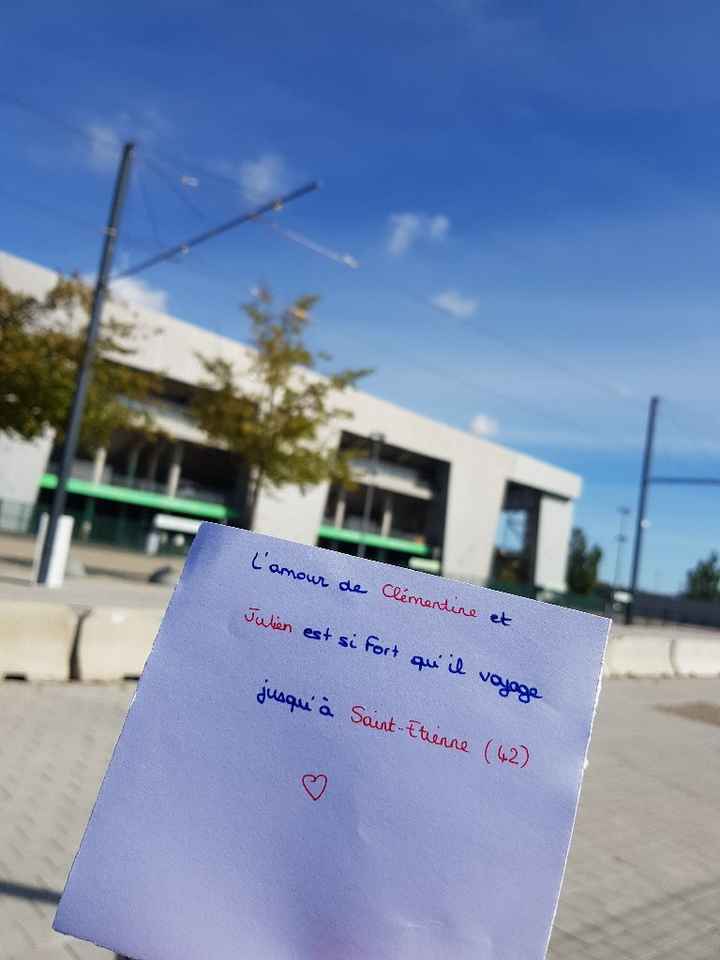 L'amour de Clémentine et
Julien est si fort qu'il voyage
jusqu'à Saint-Etienne (42)